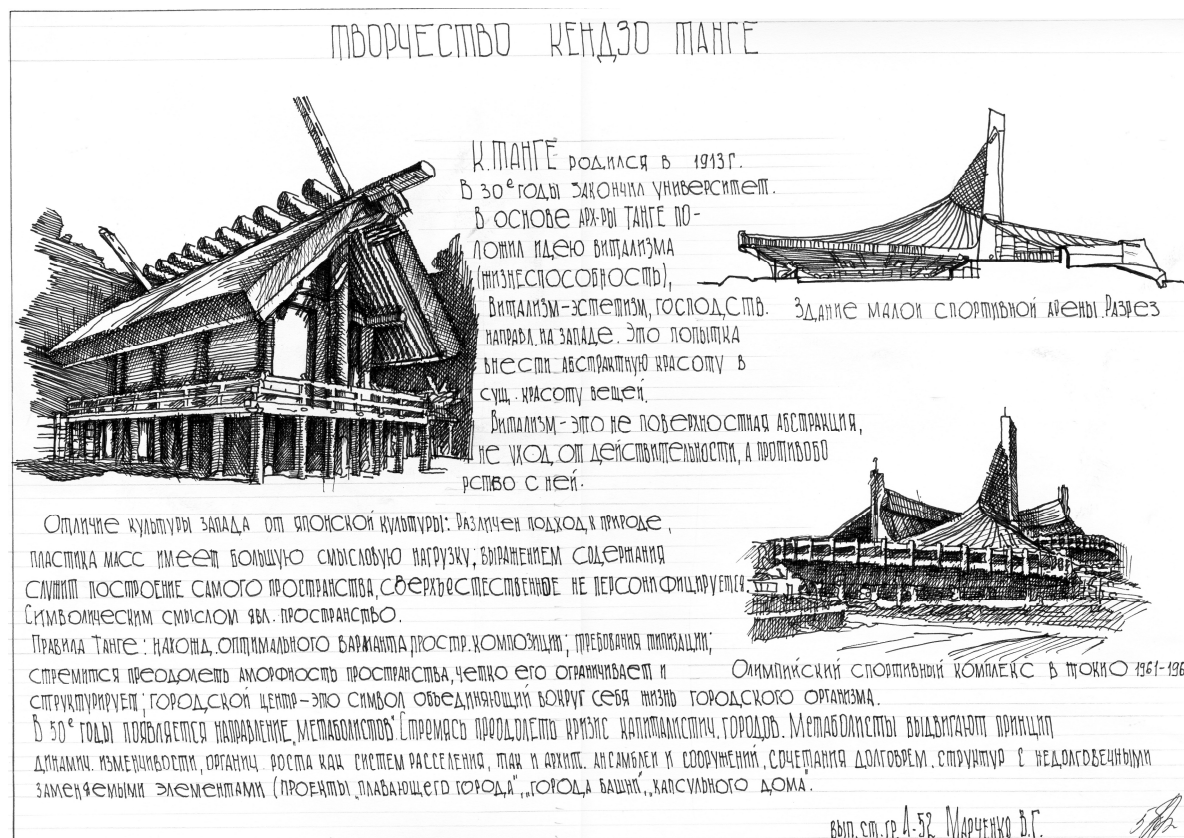 ТВОРЧЕСТВО КЕНДЗО ТАНГЕ
К. ТАНГЕ РОДИЛСЯ В 1913 Г.
В 30е ГОДЫ ЗАКОНЧИЛ УНИВЕРСИТЕТ.
В ОСНОВЕ АРХ-РЫ ТАНГЕ ПО-
ЛОЖИЛ ИДЕЮ ВИТАЛИЗМА
(ЖИЗНЕСПОСОБНОСТЬ),
ВИТАЛИЗМ-ЭСТЕТИЗМ, ГОСПОДСТВ.
НАПРАВЛ. НА ЗАПАДЕ. ЭТО ПОПЫТКА
ВНЕСТИ АБСТРАКТНУЮ КРАСОТУ В
СУЩ. КРАСОТУ ВЕЩЕЙ.
ВИТАЛИЗМ-ЭТО НЕ ПОВЕРХНОСТНАЯ АБСТРАКЦИЯ,
НЕ УХОД ОТ ДЕЙСТВИТЕЛЬНОСТИ, А ПРОТИВОБО
РСТВО С НЕЙ.
ЗДАНИЕ МАЛОЙ СПОРТИВНОЙ АРЕНЫ. РАЗРЕЗ
ОТЛИЧИЕ КУЛЬТУРЫ ЗАПАДА ОТ ЯПОНСКОЙ КУЛЬТУРЫ: РАЗЛИЧЕН ПОДХОД К ПРИРОДЕ,
ПЛАСТИКА МАСС ИМЕЕТ БОЛЬШУЮ СМЫСЛОВУЮ НАГРУЗКУ; ВЫРАЖЕНИЕМ СОДЕРЖАНИЯ
СЛУЖИТ ПОСТРОЕНИЕ САМОГО ПРОСТРАНСТВА, СВЕРХЪЕСТЕСТВЕННОЕ НЕ ПЕРСОНИФИЦИРУЕТСЯ.
СИМВОЛИЧЕСКИМ СМЫСЛОМ ЯВЛ. ПРОСТРАНСТВО.
ПРАВИЛА ТАНГЕ: НАХОЖД. ОПТИМАЛЬНОГО ВАРИАНТА ПРОСТР. КОМПОЗИЦИИ; ТРЕБОВАНИЯ ТИПИЗАЦИИ;
СТРЕМИТСЯ ПРЕОДОЛЕТЬ АМОРФНОСТЬ ПРОСТРАНСТВА, ЧЕТКО ЕГО ОГРАНИЧИВАЕТ И
СТРУКТУРИРУЕТ; ГОРОДСКОЙ ЦЕНТР-ЭТО СИМВОЛ ОБЪЕДИНЯЮЩИЙ ВОКРУГ СЕБЯ ЖИЗНЬ ГОРОДСКОГО ОРГАНИЗМА.
ОЛИМПИЙСКИЙ СПОРТИВНЫЙ КОМПЛЕКС В ТОКИО 1961-196
В 50е ГОДЫ ПОЯВЛЯЕТСЯ НАПРАВЛЕНИЕ „МЕТАБОЛИСТОВ“. СТРЕМЯСЬ ПРЕОДОЛЕТЬ КРИЗИС КАПИТАЛИСТИЧ. ГОРОДОВ. МЕТАБОЛИСТЫ ВЫДВИГАЮТ ПРИНЦИП
ДИНАМИЧ. ИЗМЕНЧИВОСТИ, ОРГАНИЧ. РОСТА КАК СИСТЕМ РАССЕЛЕНИЯ, ТАК И АРХИТ. АНСАМБЛЕЙ И СООРУЖЕНИЙ, СОЧЕТАНИЯ ДОЛГОВРЕМ. СТРУКТУР С НЕДОЛГОВЕЧНЫМИ
ЗАМЕНЯЕМЫМИ ЭЛЕМЕНТАМИ (ПРОЕКТЫ „ПЛАВАЮЩЕГО ГОРОДА“, „ГОРОДА БАШНИ“, „КАПСУЛЬНОГО ДОМА“.
ВЫП. СТ. ГР. А-52 МАРЧЕНКО В.Г.